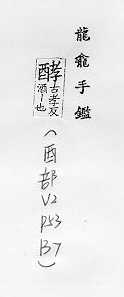 龍龕手鑑
酵古孝反
酒酵也
(酉部
V2
P53
B7)